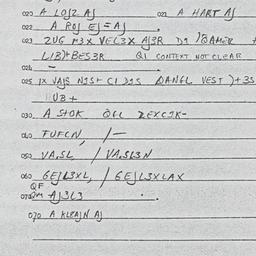 020 A LOJ2 AJ 021 A HART AJ
022 A ROJ EJ=AJ
023 2UG M3X VEL3X AJ3R DJ )QAMER +
L1B)+BES3R Q1 CONTEXT NOT CLEAR
024 —
025 1X VAJS NJS+ C1 DJS DANGL VEST)+3S
UB+
030 A STOK QGL ZEXCJK-
040 FUFCN, /—
050 VA,SL / VA,SL3N
060 GEJL3XL, / GEJL3XLAX
QF
070 QM AJ3L3
070 A KLEAJN AJ